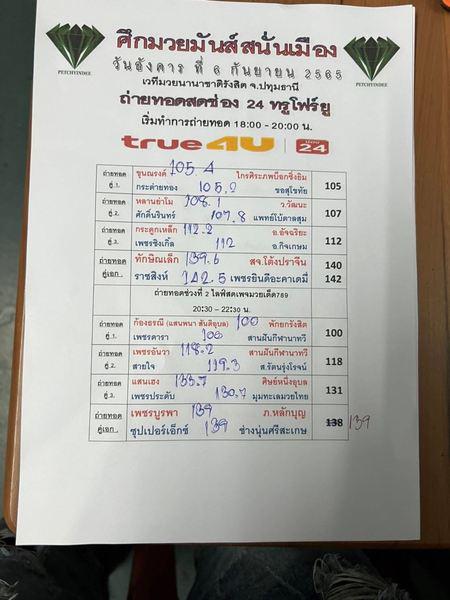 ศึกมวยมันส์สนั่นเมือง
PETCHYINDEE
PETCHYINDEE
วันอังคาร ที่ 6 กันยายน 2565
เวทีมวยนานาชาติรังสิต จ.ปทุมธานี
ถ่ายทอดสดช่อง 24 ทรูโฟร์ยู
เริ่มทำการถ่ายทอด 18:00 - 20:00 น.
true4U 24
ถ่ายทอด ขุนณรงค์ 105.4 ไกรศิระภพบ็อกซิ่งยิม 105
คู่ 1. กระต่ายทอง 105.2 ชอสุโขทัย
ถ่ายทอด หลานย่าโม 108.1 ว.วัฒนะ 107
คู่ 2. ศักดิ์นรินทร์ 107.8 แพทย์โบ้ตาลสุม
ถ่ายทอด กระดูกเหล็ก 112.2 อ.อัจฉริยะ 112
คู่ 3. เพชรชิงเกิ้ล 112 อ.กิจเกษม
ถ่ายทอด ทักษิณเล็ก 139.6 สจ.โต้งปราจีน 140
คู่เอก . ราชสิงห์ 142.5 เพชรยินดีอะคาเดมี่ 142
ถ่ายทอดช่วงที่ 2 ไลฟ์สดเพจมวยเด็ด789
20:30 - 22:30 น.
ถ่ายทอด ก้องธรณี (แสนพนา สันติอุบล) 100 พักยกรังสิต 100
คู่ 1. เพชรดารา 100 สานฝันกีฬานาทวี
ถ่ายทอด เพชรอันวา 118.2 สานฝันกีฬานาทวี 118
คู่ 2. สายใจ 119.3 ส.รัตนรุ่งโรจน์
ถ่ายทอด แสนเฮง 133.7 ศิษย์หนึ่งอุบล 131
คู่ 3. เพชรประดับ 130.7 มุมทะเลมวยไทย
ถ่ายทอด เพชรบูรพา 139 ภ.หลักบุญ 138 139
คู่เอก . ซุปเปอร์เอ็กซ์ 139 ช่างนุ่นศรีสะเกษ